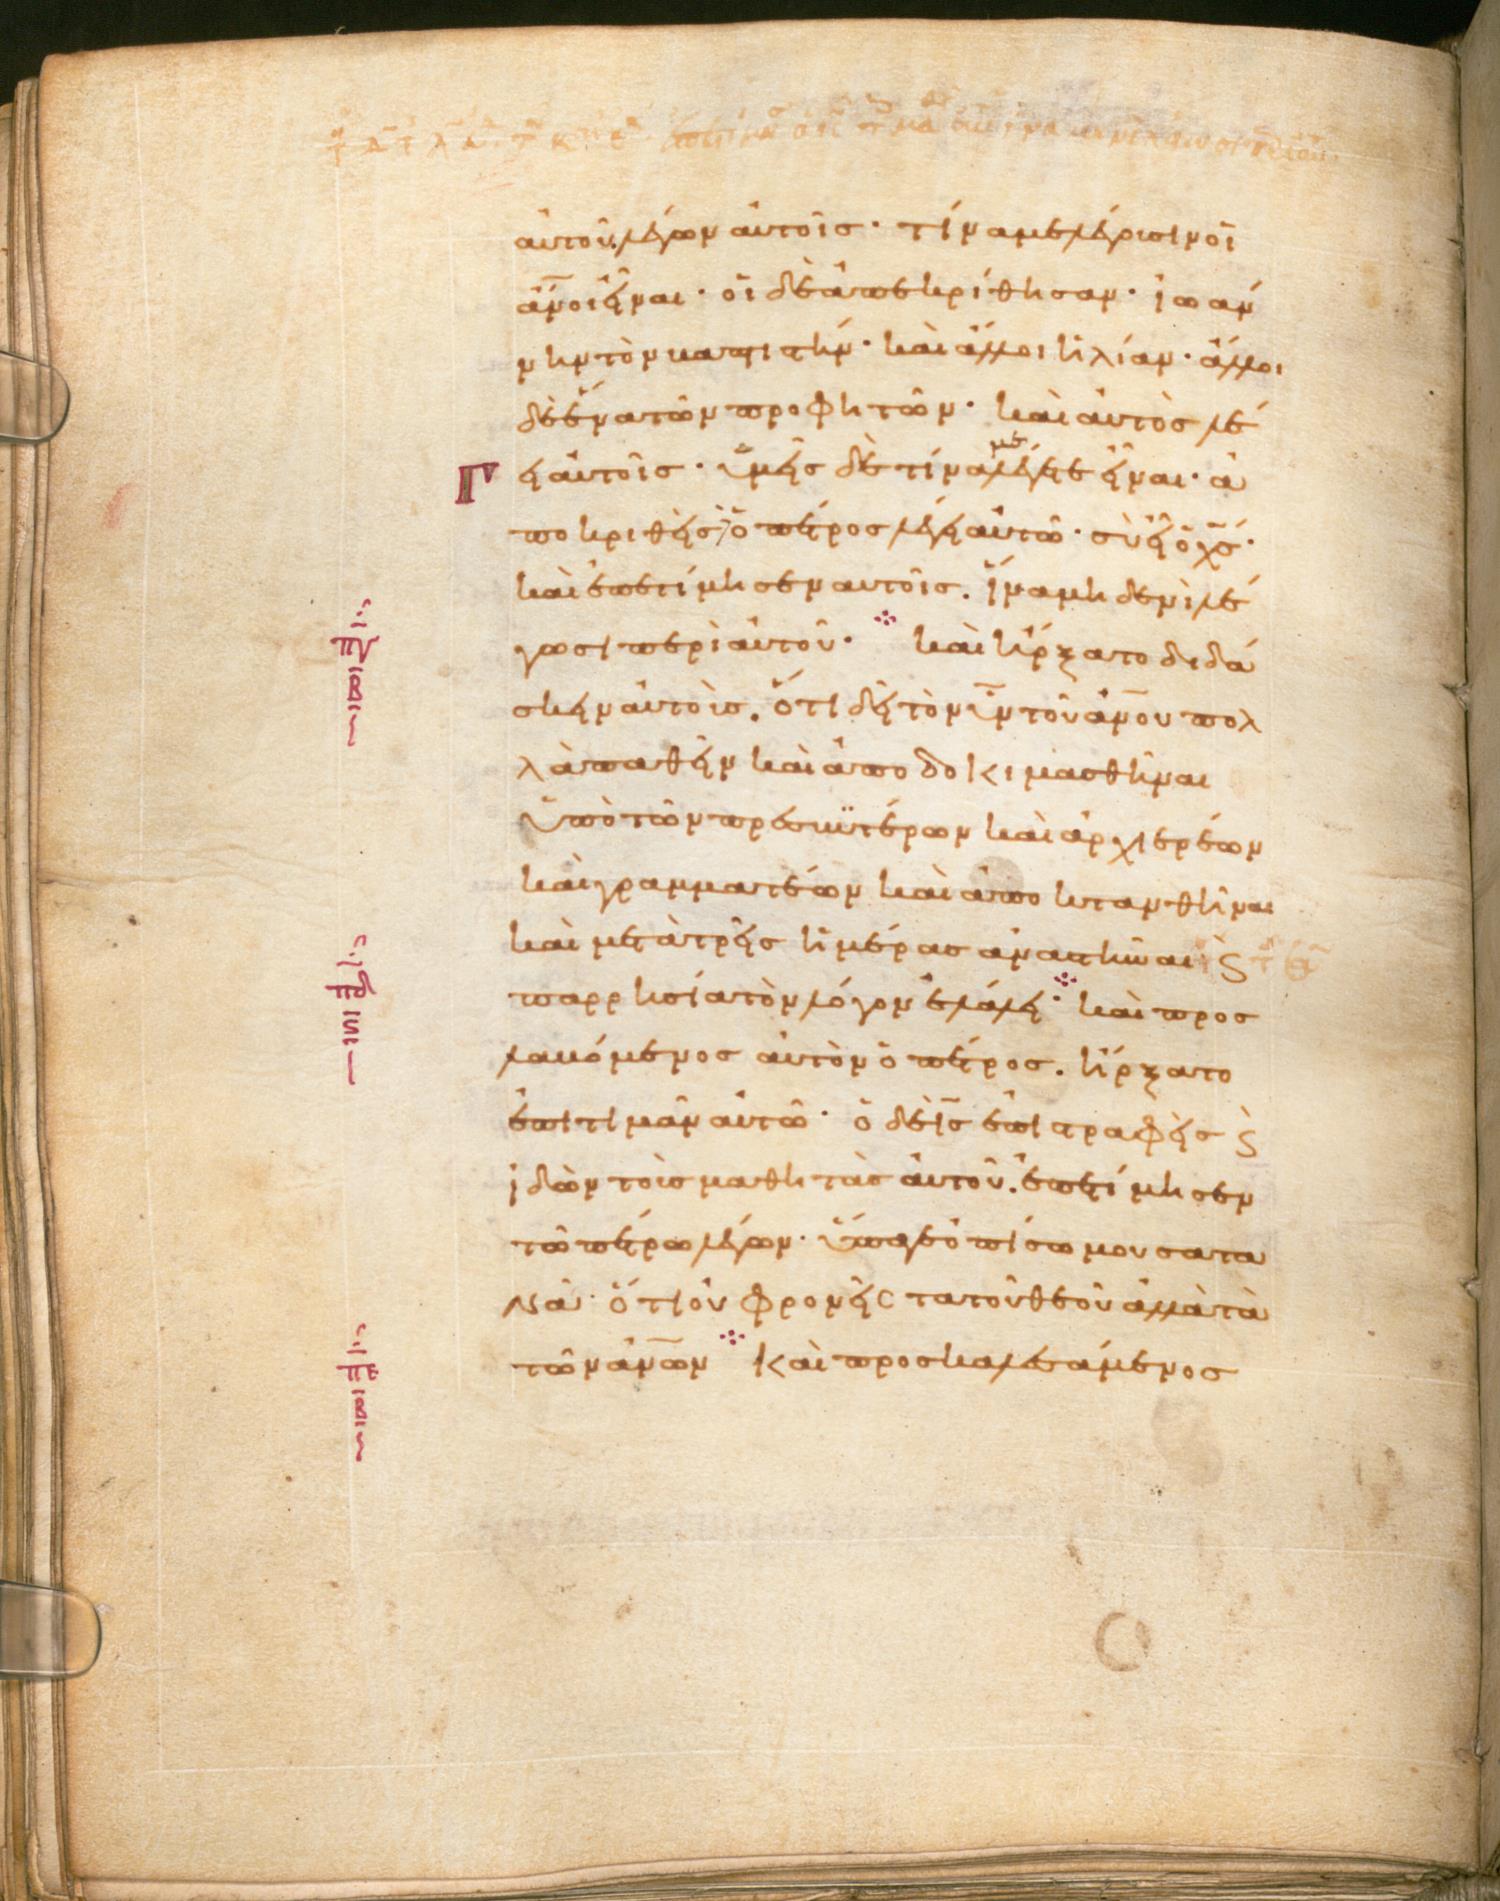 αὐτοῦ. λέγων αὐτοῖς· τίνα με λέγουσιν οἱ
ἄν̅οι εἶναι· οἱ δὲ ἀπεκρίθησαν· ἰωάν
νην τὸν βαπτιστήν· καὶ ἄλλοι ἠλίαν· ἄλλοι
δὲ ἕνα τῶν προφητῶν· καὶ αὐτὸς λέ
γει αὐτοῖς· ὑμεῖς δὲ τίνα με λέγετε εἶναι· ἀ
ποκριθεὶς ὁ πέτρος λέγει αὐτῶ· σὺ εἶ ὁ χ̅ς·
καὶ ἐπετίμησεν αυτοῖς. ἵνα μηδενὶ λέ
γωσι περὶ αὐτοῦ· καὶ ἤρξατο διδά
σκειν αὐτοὺς. ὅτι δεῖ τὸν υ̅ν τοῦ ἀν̅ου πολ
λὰ παθεῖν καὶ ἀποδοκιμασθῆναι
ὑπὸ τῶν πρεσβϋτέρων καὶ ἀρχιερέων
καὶ γραμματέων καὶ ἀποκτανθῆναι
καὶ μετὰ τρεῖς ἡμέρας ἀναστῆναι· ϗ
παρρησία τὸν λόγον ἐλάλει· καὶ προσ
λαβόμενος αὐτὸν ὁ πέτρος. ἤρξατο
ἐπιτιμᾶν αὐτῶ· ὁ δὲ ι̅ς ἐπιστραφεὶς ϗ
ἰδὼν τοὺς μαθητὰς αὐτοῦ. ἐπετίμησεν
τῶ πέτρω λέγων· ὕπαγε ὀπίσω μου σατα
νᾶ· ὅτι οὐ φρονεῖς τα τοῦ θεοῦ ἀλλὰ τὰ
τῶν ἀν̅ων καὶ προσκαλεσάμενος